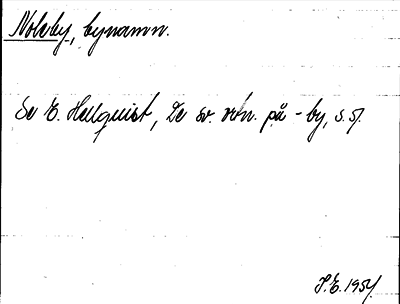 Nolby, bynamn.
Se E. Hellquist, De sv. ortn. på -by, s. 57.
J.E. 1954